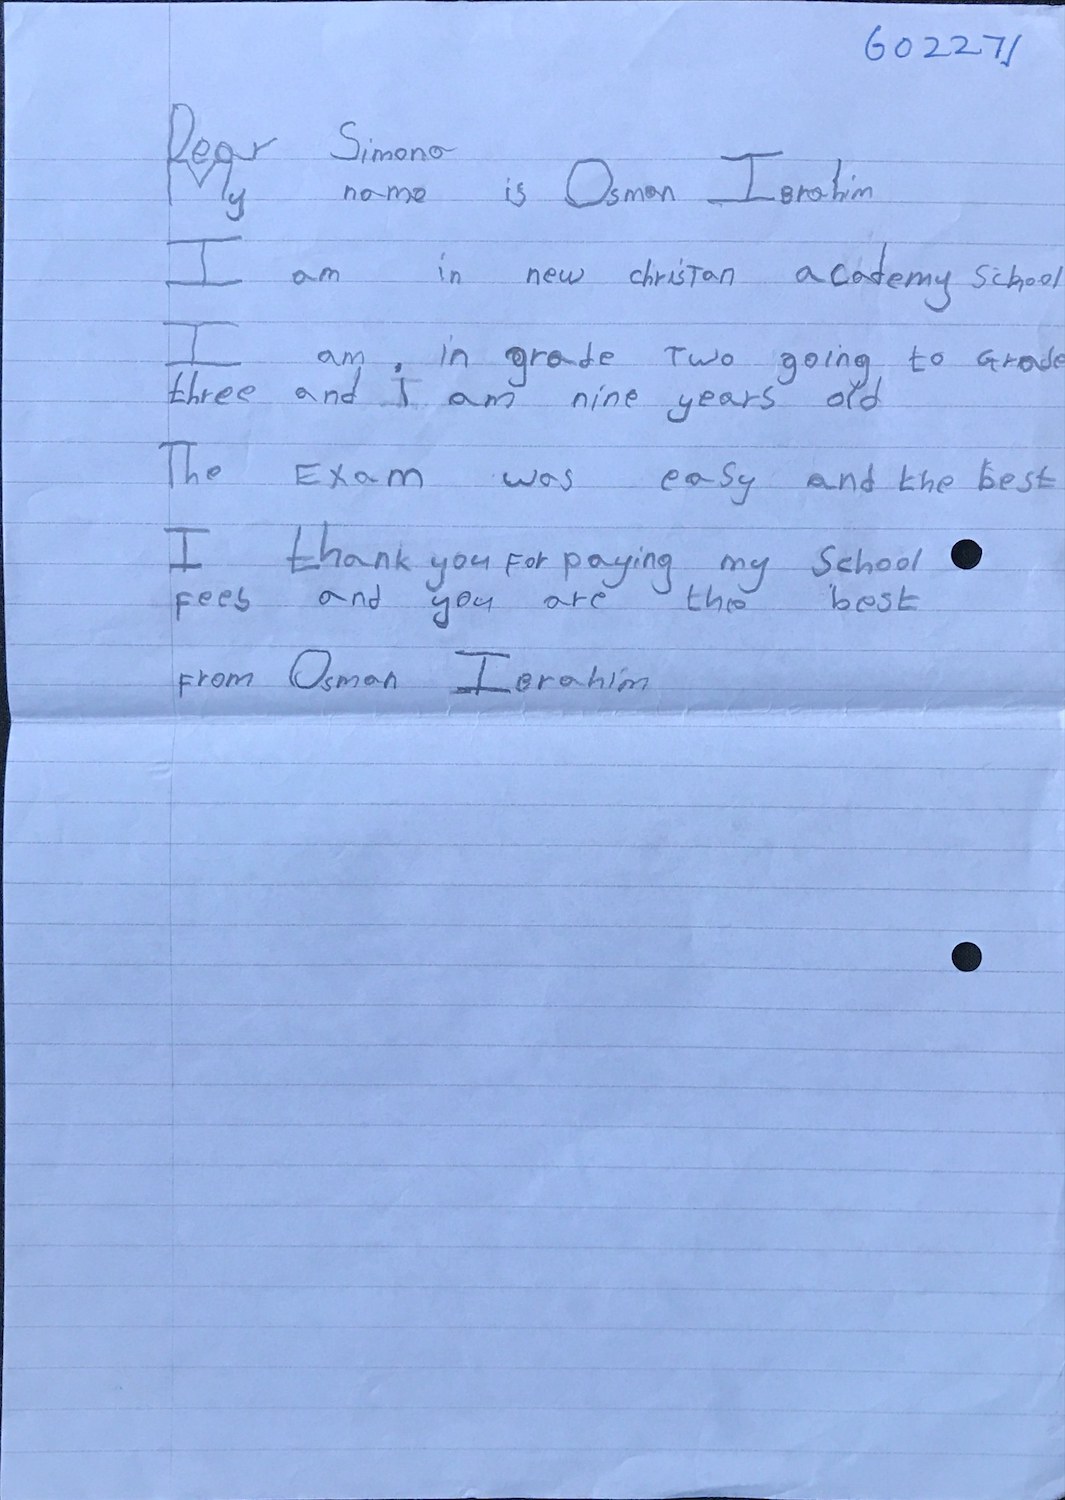 60227/
Dear Simona
My name is Osman Ibrahim
I am in new christan academy School
I am, in grade Two going to Grade
three and I am nine years old
The Exam was easy and the best
I thank you For paying my School
Fees and you are the best
From Osman Ibrahim